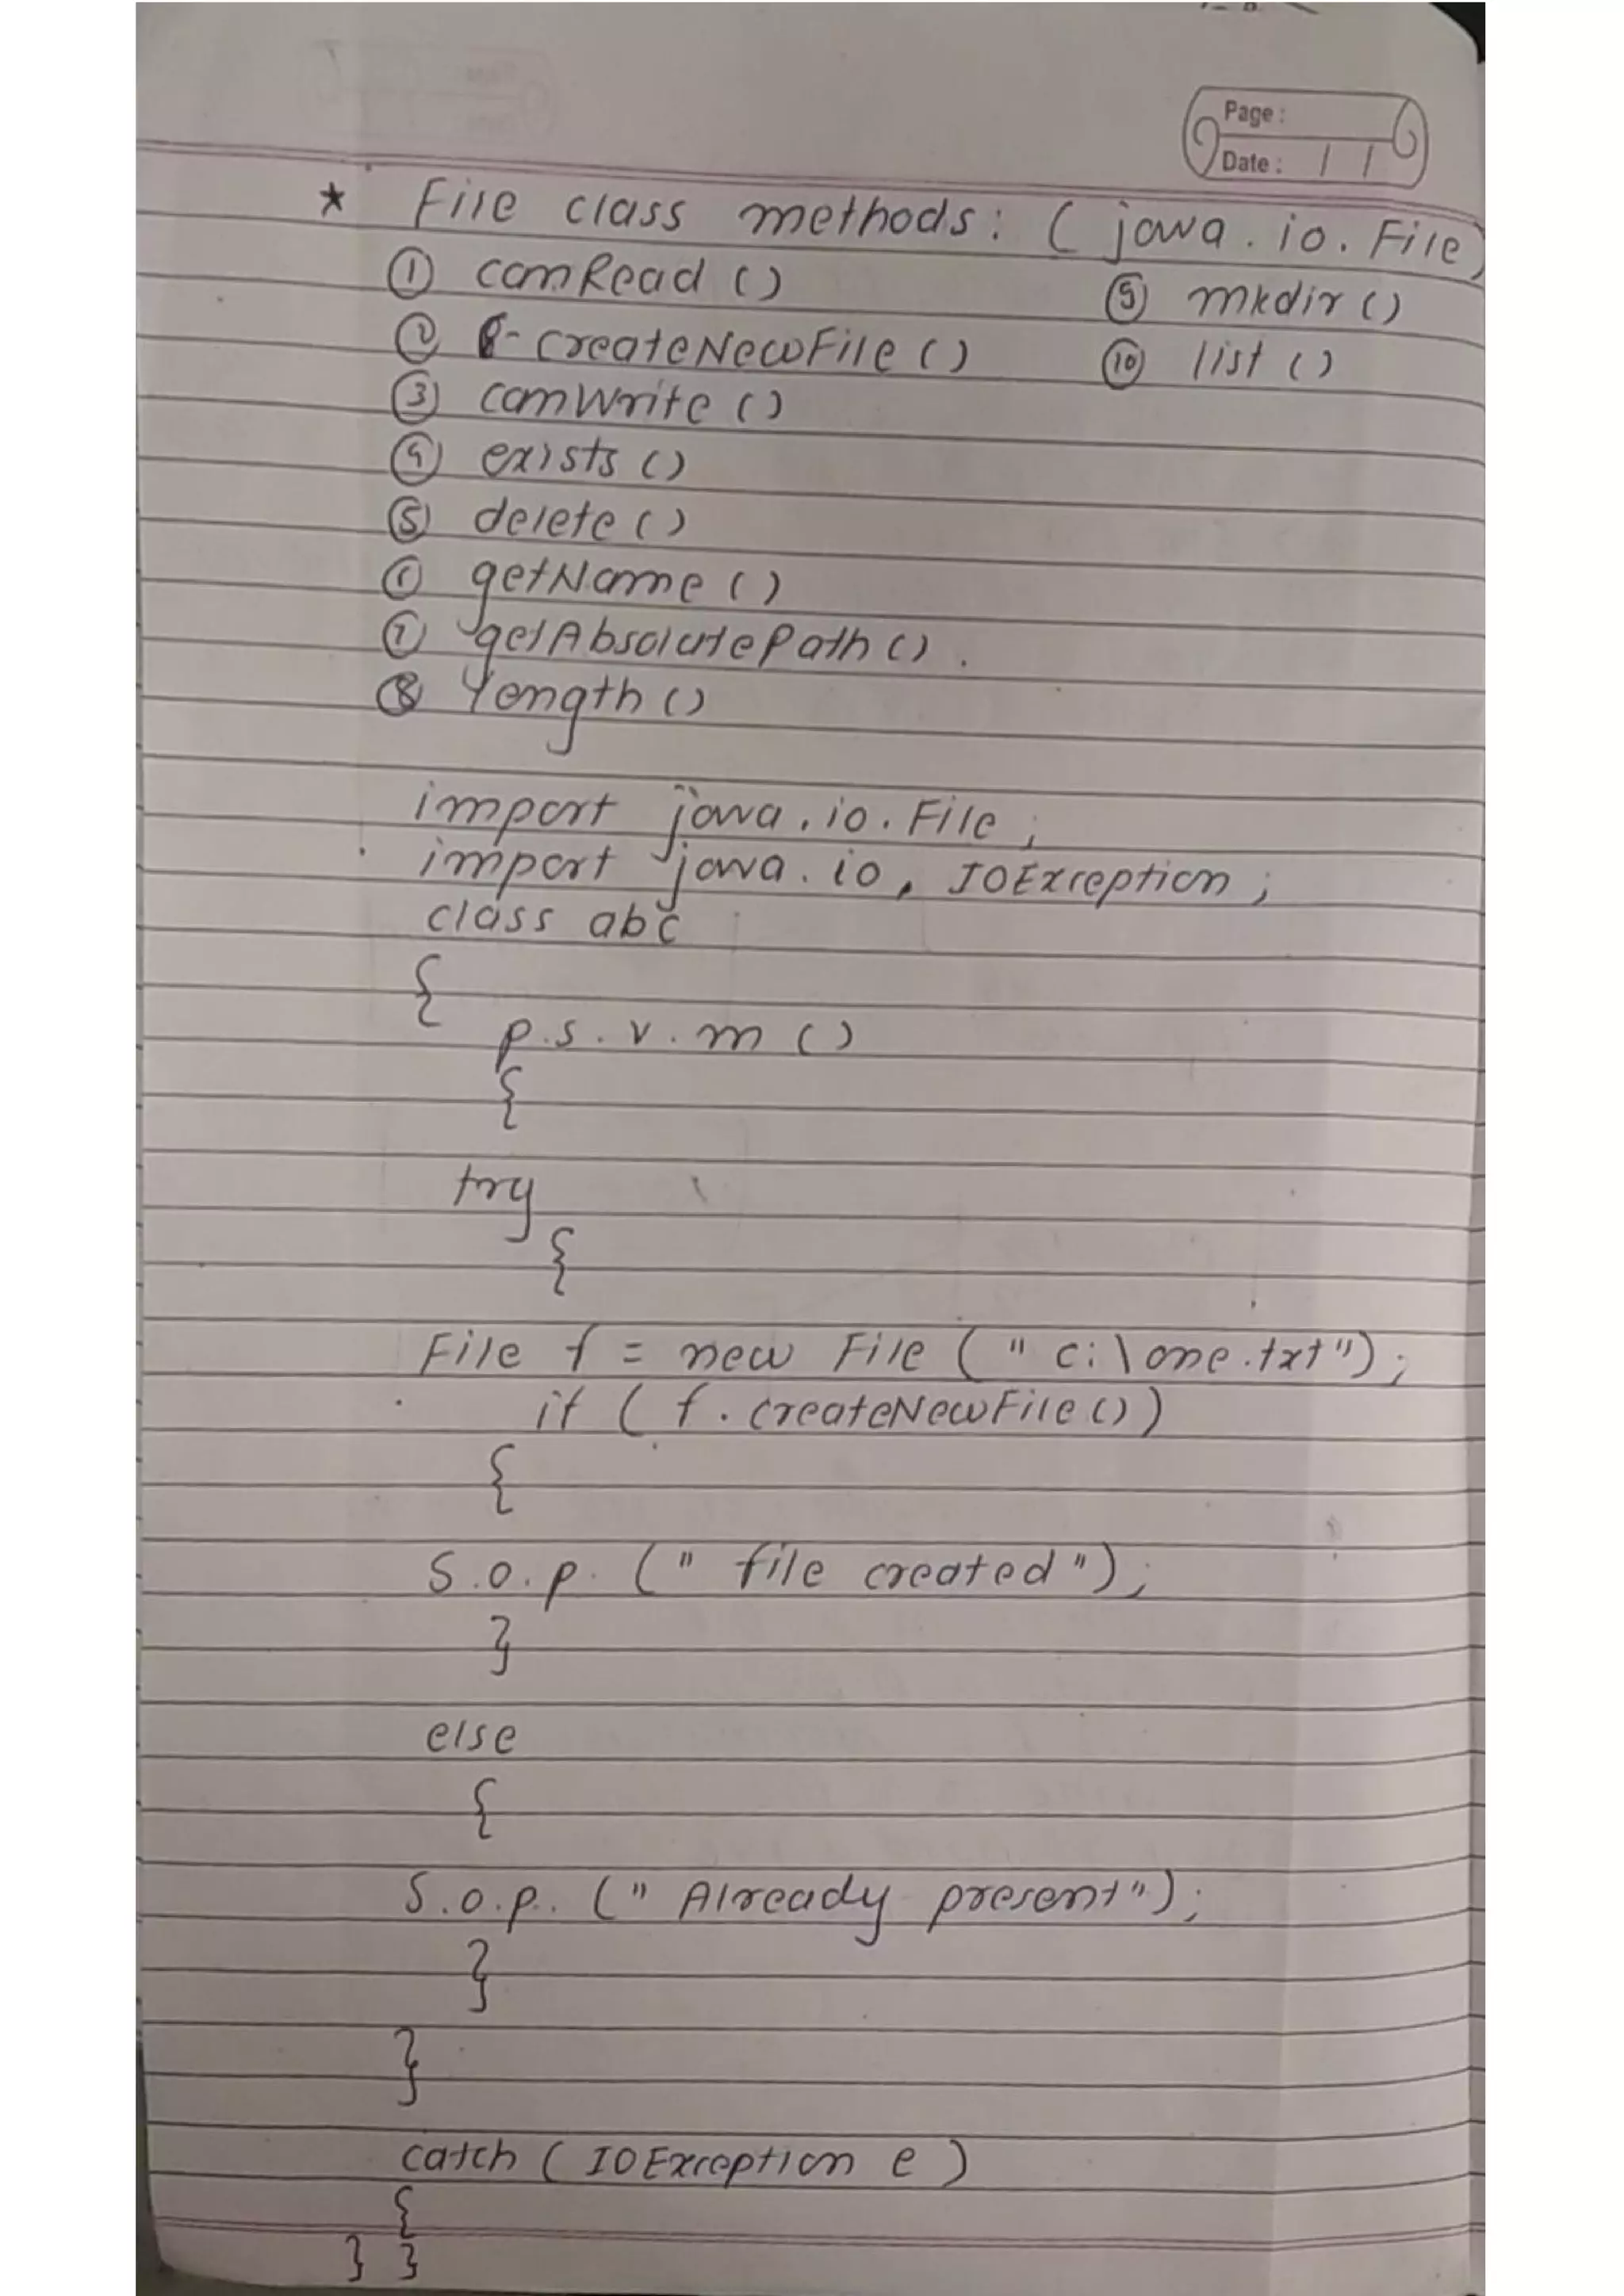 Page :
Date : / /
* File class methods : ( java . io . File )
① canRead ()
② createNewFile ()
③ canWrite ()
④ exists ()
⑤ delete ()
⑥ getName ()
⑦ getAbsolutePath () .
⑧ length ()
⑨ mkdir ()
⑩ list ()
import java . io . File ;
import java . io . IOException ;
class abc
{
p . s . v . m ()
{
try
{
File f = new File ( " c:\one.txt" ) ;
if ( f . createNewFile () )
{
S . o . p . ( " file created " ) ;
}
else
{
S . o . p . ( " Already present " ) ;
}
}
catch ( IOException e )
{
} }